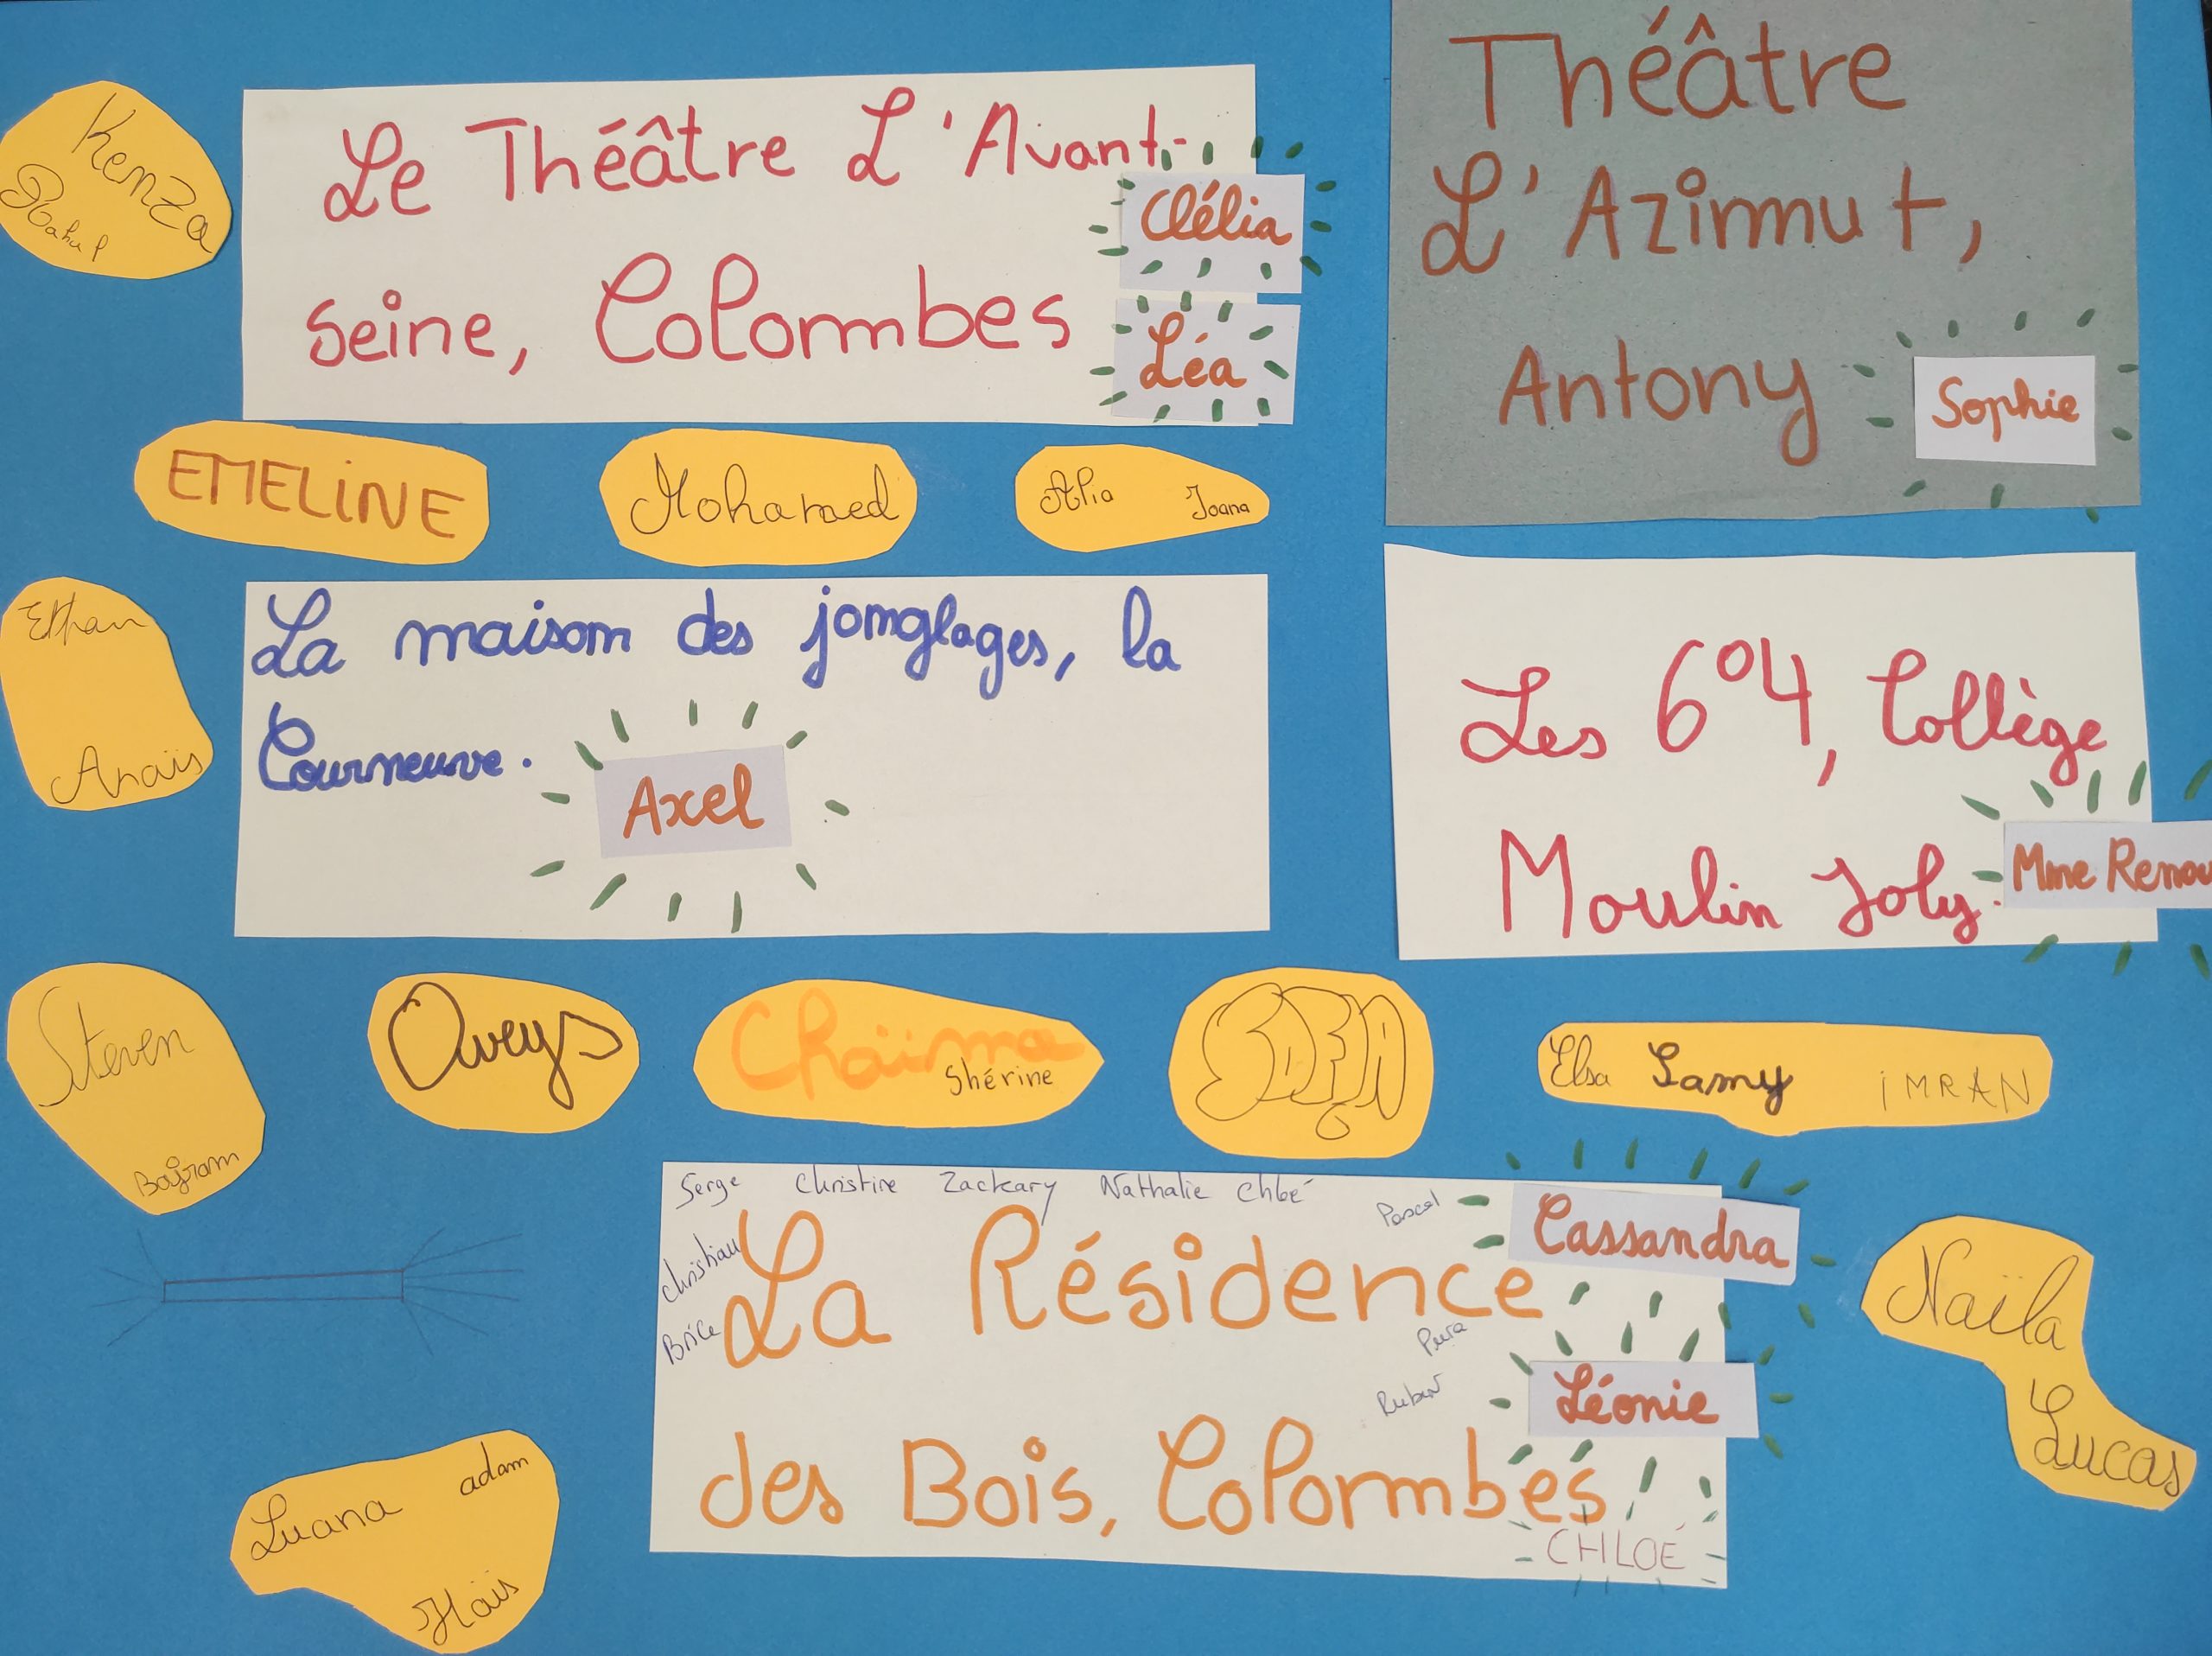 Kenza
Le Théâtre L'Avant-
seine, Colombes
Clélia
Léa
Théâtre
L'Azimut,
Antony
Sophie
EMELINE
Mohamed
Alia Joana
Ethan
Anaïs
La maison des jonglages, la
Courneuve.
Axel
Les 6°4, Collège
Moulin Joly.
Mme Renou
Steven
Bayram
Oweys
Chaïma
Shérine
SOFIA
Elsa Samy iMRAN
Serge Christine Zackary Nathalie Chloé
Pascal
Christian
Brice
La Résidence
Cassandra
Ruben
Léonie
des Bois, Colombes
CHLOÉ
Naïla
Lucas
Luana adam
Haïs